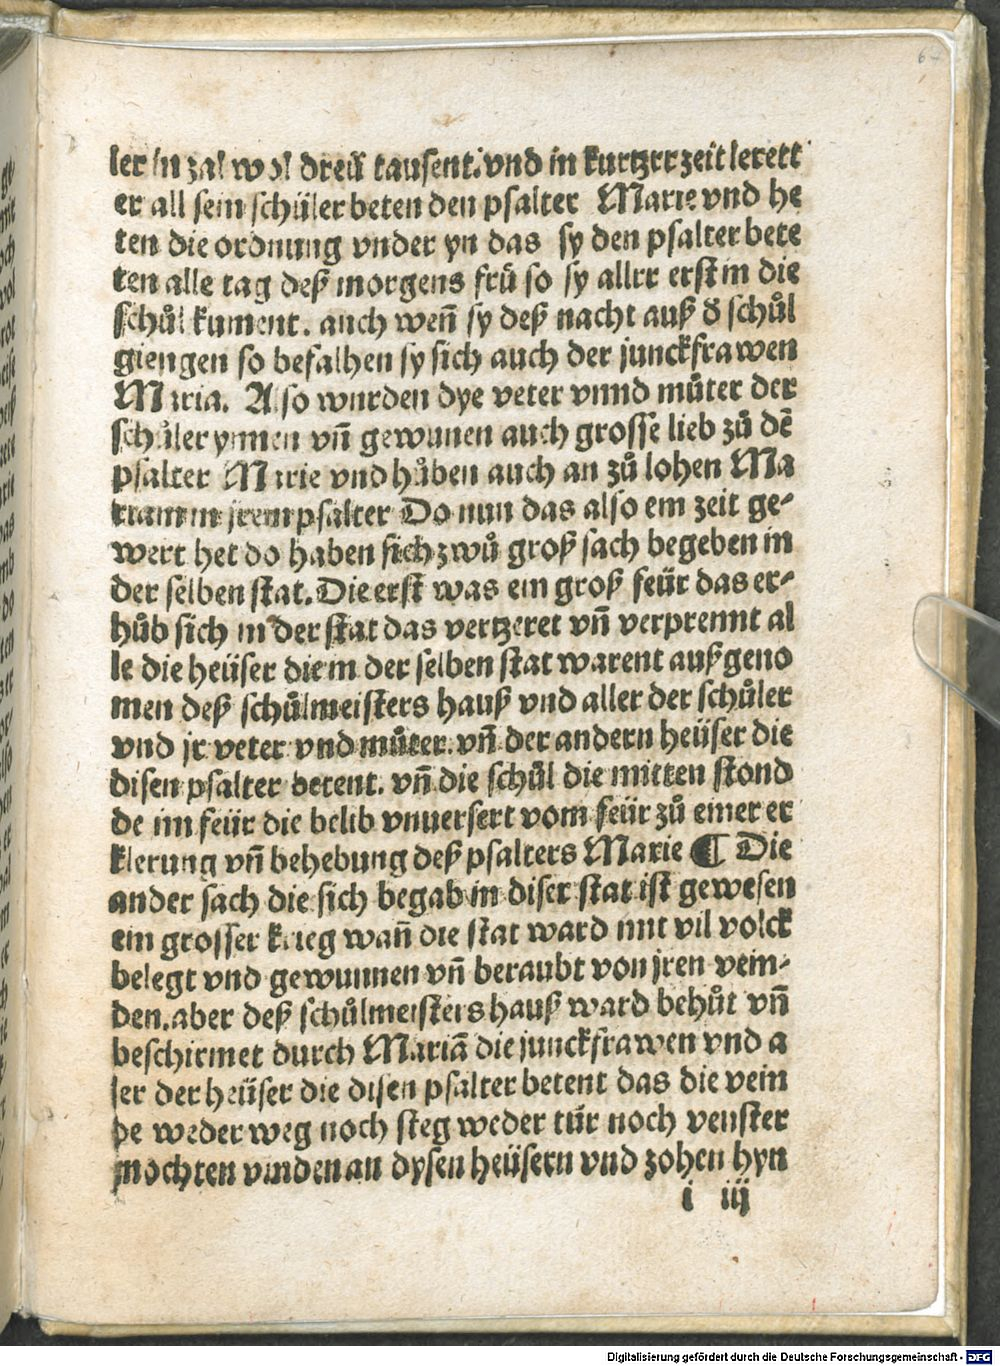 ler in zal wol dreü tausent. vnd in kurtzrr zeit lerett
er all sein schüler beten den psalter Marie vnd he
ten die ordnung vnder yn das sy den psalter bete
ten alle tag deß morgens frů so sy allrr erst in die
schůl kument. auch weñ sy deß nacht auß d̕ schůl
giengen so befalhen sy sich auch der junckfrawen
Maria. Also wurden dye veter vnnd můter der
schůler ynnen vñ gewunen auch grosse lieb zů dē
psalter Marie vnd hůben auch an zů lohen Ma
riam in jrem psalter Do nun das also ein zeit ge⸗
wert het do haben sich zwů groß sach begeben in
der selben stat. Die erst was ein groß feür das er⸗
hůb sich in der stat das vertzeret vñ verprennt al
le die heüser die in der selben stat warent außgeno
men deß schůlmeisters hauß vnd aller der schůler
vnd jr veter vnd můter. vñ der andern heüser die
disen psalter betent. vñ die schůl die mitten stond
de im feür die belib vnuersert vom feür zů einer er
klerung vñ behebung deß psalters Marie ¶ Die
ander sach die sich begab in diser stat ist gewesen
ein grosser krieg wañ die stat ward mit vil volck
belegt vnd gewunnen vñ beraubt von jren vein⸗
den. aber deß schůlmeisters hauß ward behůt vñ
beschirmet durch Mariā die junckfrawen vnd a
ler der heüser die disen psalter betent das die vein
de weder weg noch steg weder tür noch venster
mochten vinden an dysen heüsern vnd zohen hyn
i iij
Digitalisierung gefördert durch die Deutsche Forschungsgemeinschaft - DFG